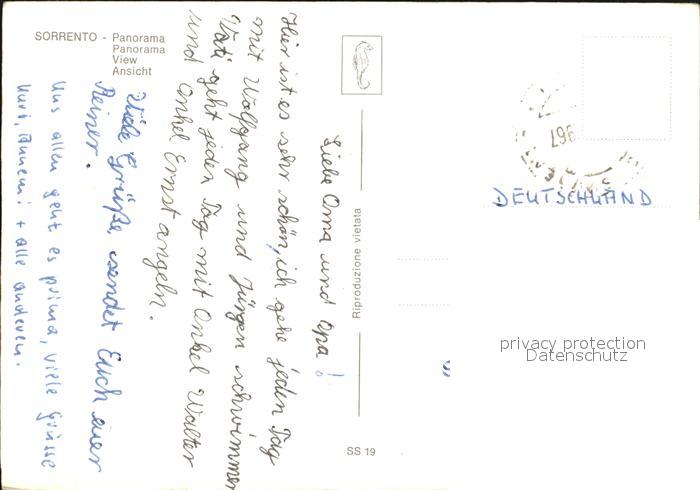 SORRENTO - Panorama
Panorama
View
Ansicht
Liebe Oma und Opa!
Hier ist es sehr schön, ich gehe jeden Tag
mit Wolfgang und Jürgen schwimmen
Vati geht jeden Tag mit Onkel Walter
und Onkel Ernst angeln.
Viele Grüße sendet Euch euer
Reiner.
Uns allen geht es prima, viele Grüsse
Kurt, Annemi + alle anderen.
Riproduzione vietata
SS 19
967
DEUTSCHLAND
privacy protection
Datenschutz